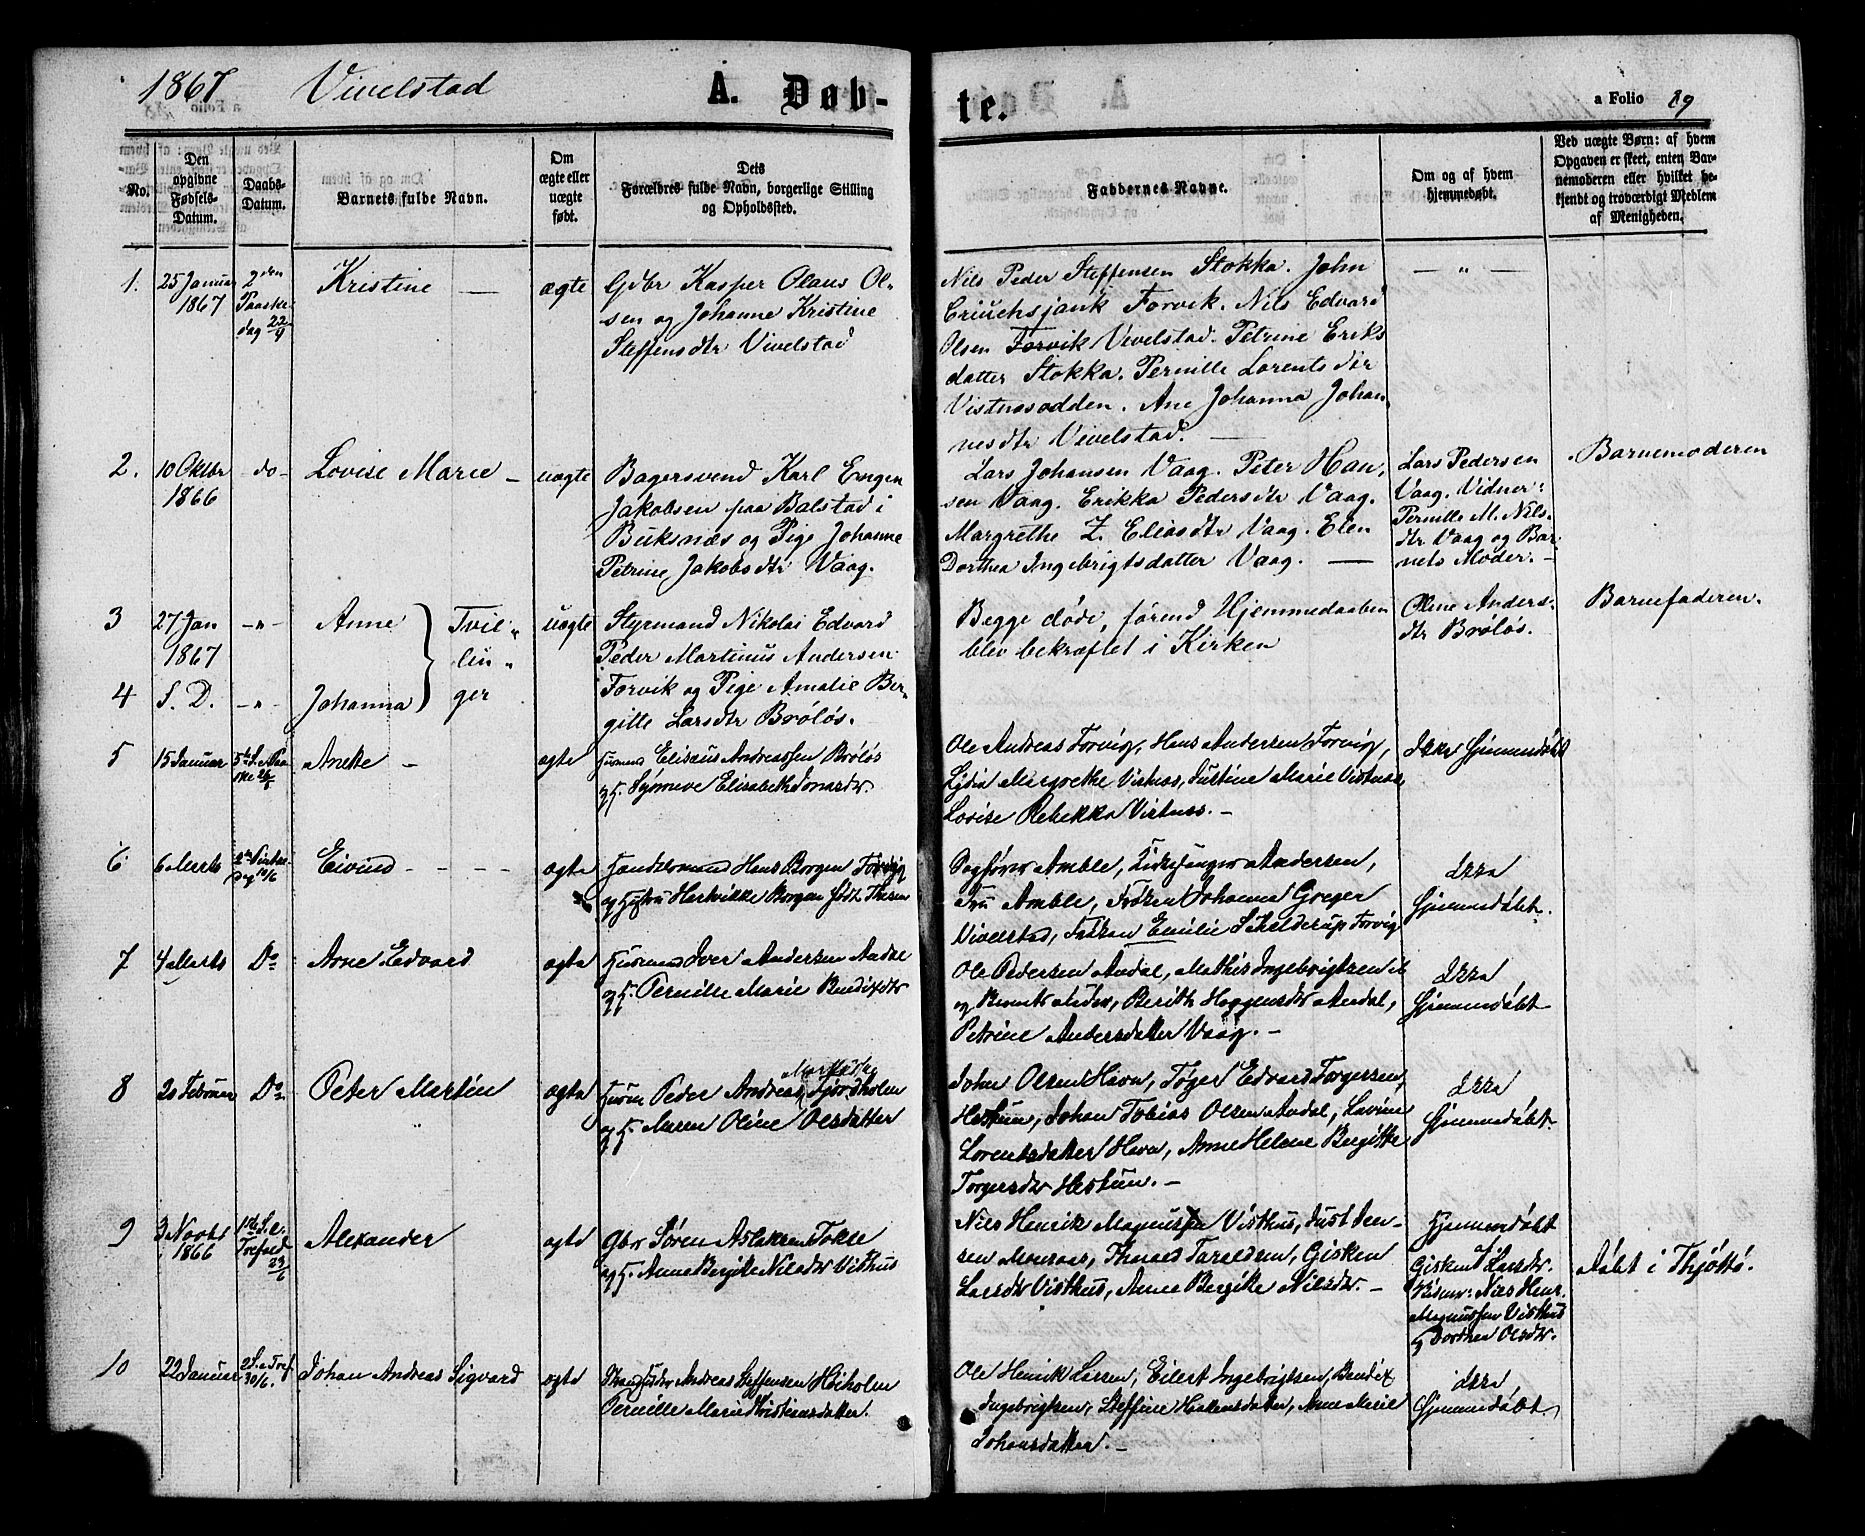 1867 Vivelstad A. Døb-
te. a Folio 19
No.
Den opgivne Fødsels-Datum.
Daabs-Datum.
Barnets fulde Navn.
Om ægte eller uægte født.
Dets Forældres fulde Navn, borgerlige Stilling og Opholdssted.
Faddernes Navne.
Om og af hvem hjemmedøbt.
Ved uægte Børn: af hvem
Opgaven er skeet, enten Bar-
nemoderen eller hvilket be-
kjendt og troværdigt Medlem
af Menigheden.
1. 25 Januar 1867
2den Paaske dag 22/9
Kristine —
ægte
Gdbr Kasper Olaus Ol-
sen og Johanne Kristine
Steffensdtr Vivelstad
Nils Peder Steffensen Stokka. John
Forvik. Nils Edvard
Olsen Forvik Vivelstad. Petrine Eriks
datter Stokka. Pernille Lorentsdtr
Vistnesodden. Ane Johanna Johan
nesdtr Vivelstad. —
— " —
2. 10 Oktbr 1866
do-
Lovise Marie -
uægte
Bagersvend Karl Eugen
Jakobsen paa Balstad i
Buksnæs og Pige Johanne
Petrine Jakobsdtr Vaag.
Lars Johansen Vaag. Peter Han,
sen Vaag. Erikka Pedersdtr Vaag.
Margrethe Z. Eliasdtr Vaag. Elen
Dorthea Ingebrigtsdatter Vaag. —
Lars Pedersen
Vaag. Vidner:
Pernille M. Nils-
dtr Vaag og Bar-
nets Moder. -
Barnemoderen
3 27 Jan 1867
-"-
Anne
Tvil-
lin-
ger
uægte
Styrmand Nikolai Edvard
Peder Martinus Andersen
Forvik og Pige Amalie Ber-
gitte Larsdtr Brøløs.
Begge døde, førend Hjemmedaaben
blev bekræftet i Kirken
Oline Anders-
dtr Brøløs.
Barnefaderen.
4 S. D. -"- Johanna
5 15 Januar
5te S. e. Paa
ske 26/5
Anette -
ægte
Husmd Elisæus Andreassen Brøløs
og H. Synnøve Elisabeth Jonasdtr.
Ole Andreas Forvig, Hans Andersen Forvig,
Lydia Margrethe Vistnes, Justine Marie Vistnes
Lovise Rebekka Vistnes. -
Ikke Hjemmedøbt
6 6 Marts
2den Pintse
dag 10/6
Eivind - - - -
ægte
Handelsmand Hans Borgen Forvig
og Hustru Hartvikke Borgen født Thesen
Sagfører Amble, Kirkesanger Andersen,
Fru Amble, Frøken Johanna Greger
Vivelstad, Frøken Emilie Schelderup Forvig
Ikke
Hjemmedøbt.
7 4 Marts
Do
Arne Edvard
ægte
Husmand Iver Andersen Andal
og H. Pernille Marie Bendixdtr
Ole Pedersen Andal, Mathis Ingebrigtsen
og Bernt, Berith Haggensdtr Andal,
Petrine Andersdatter Vaag. -
Ikke
Hjemmedøbt
8 20 Februar
Do
Peter Martin
ægte
Husm Peder Andreas Fjordholm
og H. Maren Oline Olsdatter
John Olsen Havn, Tøger Edvard Torgersen,
Hestun, Johan Tobias Olsen Andal, Lavine
Lorentsdatter Havn, Anne Helene Bergitte
Torgersdtr Hestun. -
Ikke
Hjemmedøbt
9 3 Novbr 1866
1ste S. e.
Trefold
23/6
Alexander
ægte
Gbr Søren Aslaksen Tokle
og H. Anne Bergitte Nilsdtr Visthus
Nils Henrik Magnussen Visthus, Just Jen-
sen, Thomas Taraldsen, Gisken
Larsdtr Visthus, Anne Bergitte Nilsdtr. -
Hjemmedøbt
Gisken Larsdtr.
Vidner: Nils Henr.
Magnussen Visthus
og Dorthea Olsdtr.
Døbt i Thjøttø.
10 22 Januar
2 S. e. Tref.
30/6.
Johan Andreas Sigvard
ægte
Strandsidder Andreas Steffensen Høiholm
Pernille Marie Kristiansdatter.
Ole Henrik Larsen, Eilert Ingebrigtsen, Bendix
Ingebrigtsen, Steffine Hallensdatter, Anne Marie
Johansdatter. -
Ikke
Hjemmedøbt.